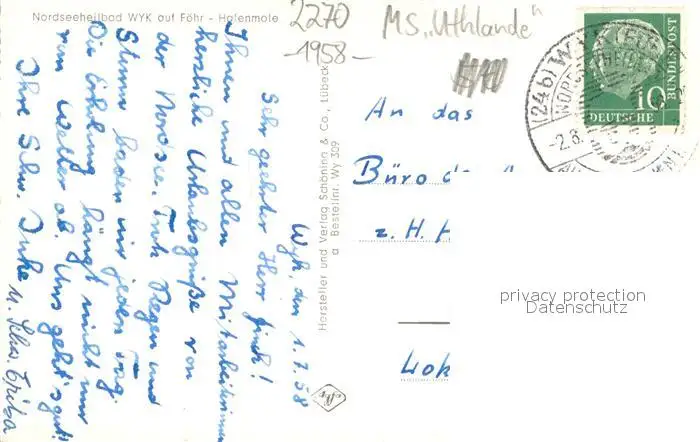 Nordseeheilbad WYK auf Föhr - Hafenmole
2270
-1958-
MS „Uthlande"
Wyk, den 1.7.58
Sehr geehrter Herr
Ihnen und allen Mitarbeiterinnen
herzliche Urlaubsgrüße von
der Nordsee. Trotz Regen und
Sturm baden wir jeden Tag.
Die Erholung hängt nicht nur
vom Wetter ab. Uns geht's gut!
Ihre Schw.
u. Schw.
Hersteller und Verlag Schöning & Co., Lübeck
a Bestellnr. Wy 309
An das
Büro d
z. H.
(24b) WYK
NORDSEEHEIL
-2.8.
10
DEUTSCHE
BUNDESPOST
privacy protection
Datenschutz